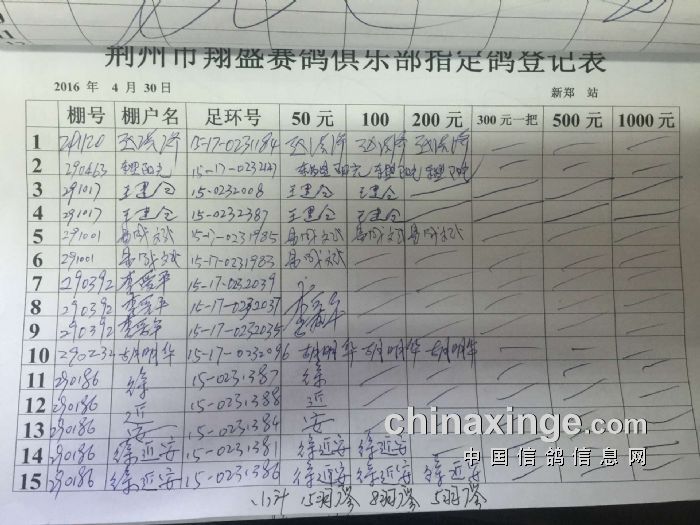 荆州市翔盛赛鸽俱乐部指定鸽登记表
2016 年 4 月 30 日 新郑 站
棚号 棚户名 足环号 50 元 100 200 元 300 元一把 500 元 1000 元
1 15-17-0231184
2 290463 15-17-0232
3 291017 王建仓 15-0232008 王建仓 王建仓
4 291017 王建仓 15-0232387 王建仓 王建仓
5 291001 15-17-0231985
6 291001 15-17-0231983
7 290392 李爱平 15-17-0232039
8 290392 李爱平 15-17-0232037
9 290392 李爱平 15-17-0232035
10 290232 胡明华 15-17-0232096 胡明华 胡明华 胡明华
11 290186 徐 15-0231387 徐
12 290186 近 15-0231388 近
13 290186 安 15-0231384 安
14 290186 徐近安 15-0231381 徐近安 徐近安
15 290186 徐近安 15-0231386 徐近安 徐近安 徐近安
小计 15羽 8羽 5羽
chinaxinge.com
中国信鸽信息网